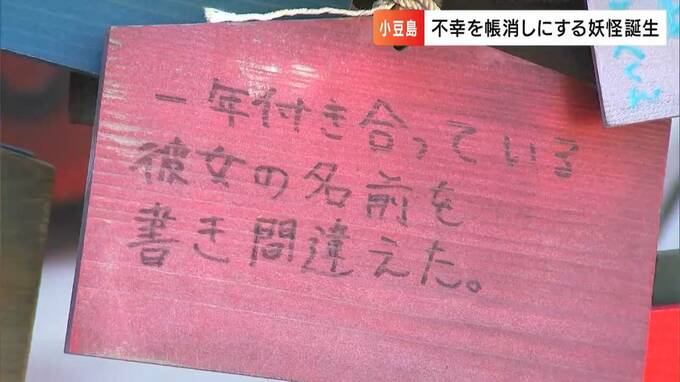 小豆島 不幸を帳消しにする妖怪誕生
一年付き合っている
彼女の名前を
書き間違えた。